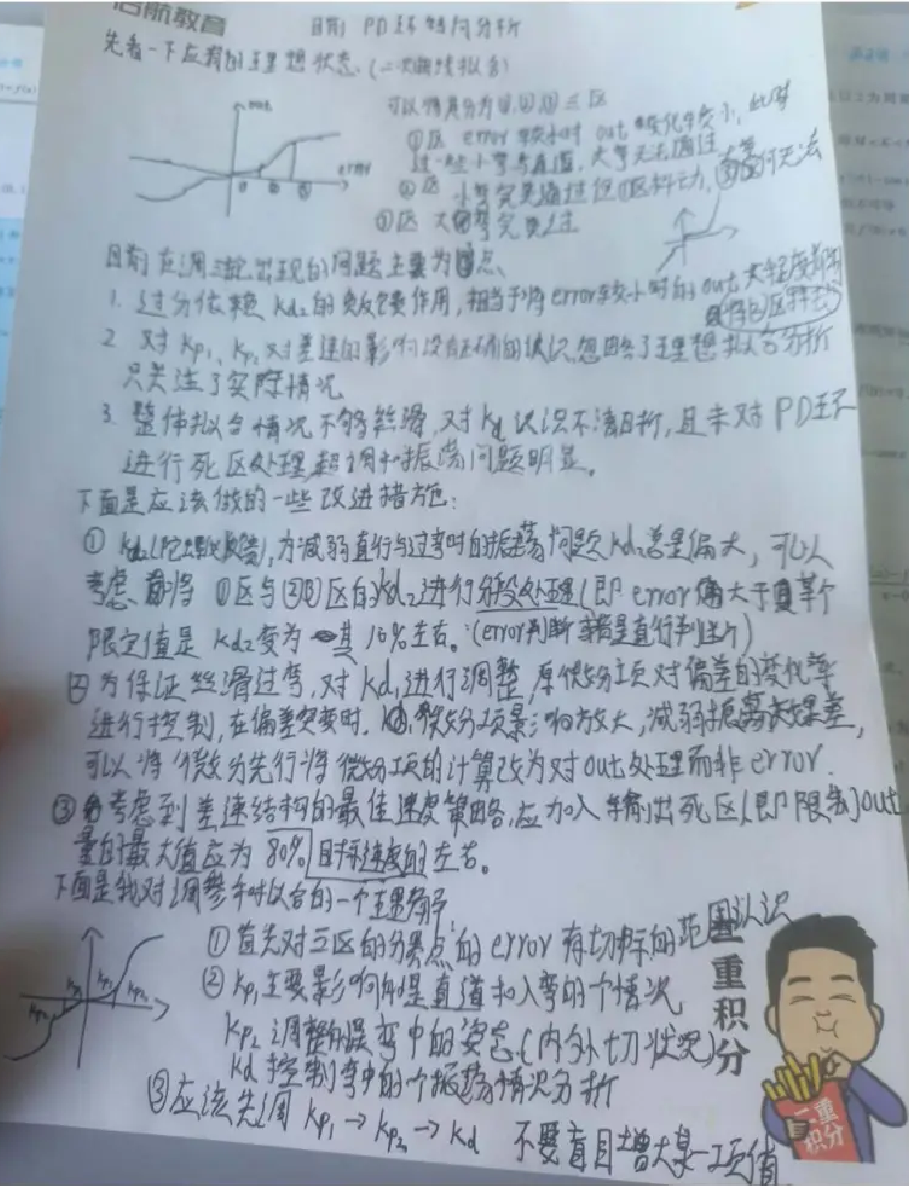 启航教育
目前PD环转向分析
先看一下应有的理想状态.(二次曲线拟合)
out
error
① ② ③
可以将其分为①,②,③三区
①区 error较小时 out变化率较小,此时
过一些小弯与直道,大弯无法通过
②区 小弯完美通过但①区抖动,③大弯仍无法
③区 大弯完美
目前在调试出现的问题主要为3点、
1. 过分依赖kd₂的负反馈作用,相当于将error较小时的out大幅度削
②区抖动
2 对kp₁、kp₂对差速的影响没有正确的认识忽略了理想拟合分析
只关注了实际情况
3. 整体拟合情况不够丝滑,对kd认识不清晰,且未对PD环
进行死区处理,超调和振荡问题明显。
下面是应该做的一些改进措施:
① kd₂(陀螺仪反馈),为减弱直行与过弯时的振荡问题kd₂总是偏大,可以
考虑 将①区与②③区的kd₂进行分段处理(即error偏大于某个
限定值是kd₂变为其10%左右。(error判断若是直行判断)
② 为保证丝滑过弯,对kd₁进行调整,原微分项对偏差的变化率
进行控制,在偏差突变时.微分项影响放大,减弱振荡效果差,
可以将微分先行将微分项的计算改为对out处理而非error.
③ 考虑到差速结构的最佳速度策略,应加入输出死区(即限制out
量的最大值应为80%目标速度的左右。
下面是我对调参与拟合的一个理解
kp₂ kp₁ kp₁ kp₂
① 首先对三区的分界点的error有切标的范围认识
② kp₁主要影响的是直道和入弯的个情况
kp₂调整的是弯中的姿态.(内外切状况)
kd控制弯中的个振荡情况分析
③应该先调kp₁→kp₂→kd 不要盲目增大某一项值
二重积分
二重
积分